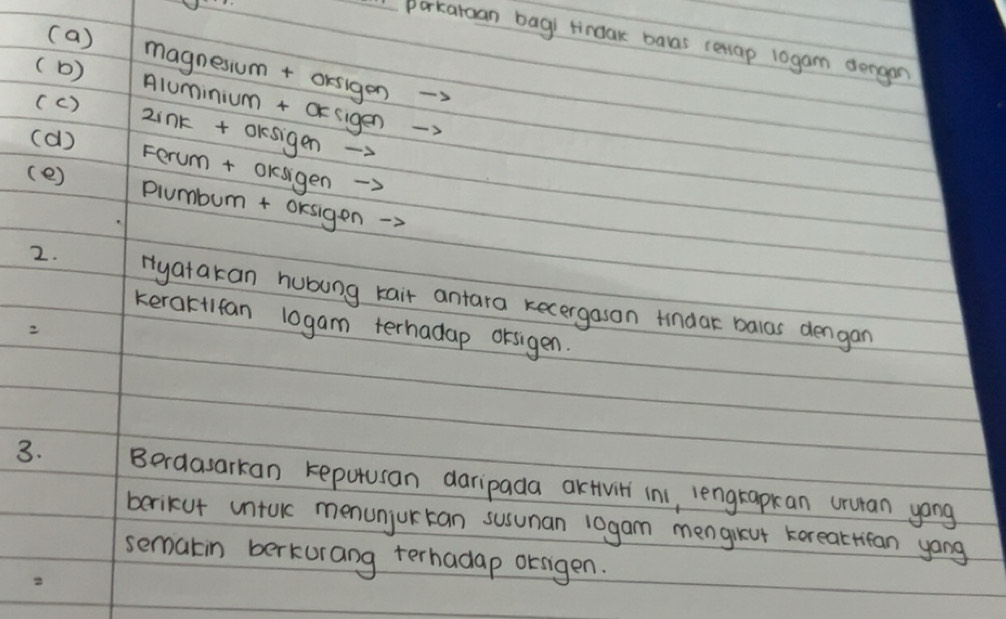 perkataan bagi tindak balas setiap logam dengan
(a) Magnesium + oksigen ->
(b) Aluminium + oksigen ->
(c) Zink + oksigen ->
(d) Ferum + oksigen ->
(e) Plumbum + oksigen ->
2. Nyatakan hubung kait antara kecergasan tindak balas dengan
keraktifan logam terhadap oksigen.
=
3. Berdasarkan keputusan daripada aktiviti ini, lengkapkan urutan yang
berikut untuk menunjukkan susunan logam mengikut kereaktifan yang
semakin berkurang terhadap oksigen.
=